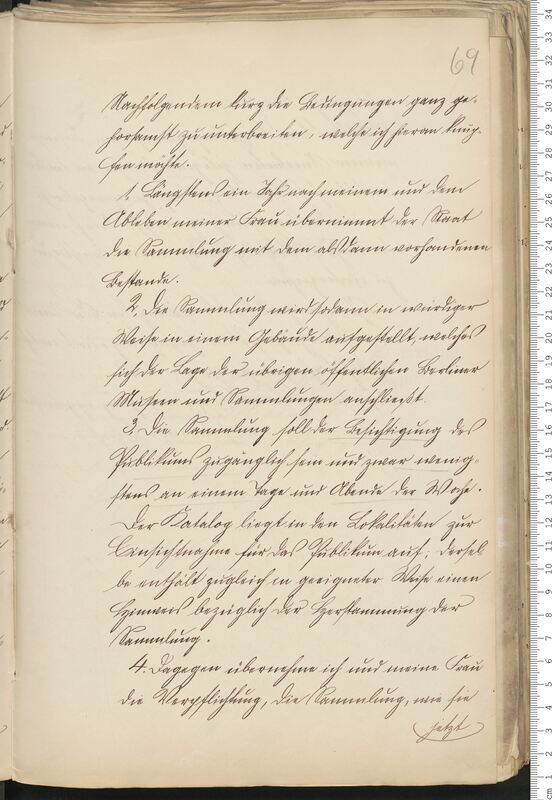 69
Nachfolgendem kurz die Bedingungen ganz ge-
horsamst zu unterbreiten, welche ich hieran knüp-
fen möchte.
1. Längstens ein Jahr nach meinem und dem
Ableben meiner Frau übernimmt der Staat
die Sammlung mit dem alsdann vorhandenen
Bestande.
2. Die Sammlung wird sodann in würdiger
Weise in einem Gebäude aufgestellt, welches
sich der Lage der übrigen öffentlichen Berliner
Museen und Sammlungen anschließt.
3. Die Sammlung soll der Besichtigung des
Publikums zugänglich sein und zwar wenig-
stens an einem Tage und Abende der Woche.
Der Katalog liegt in den Lokalitäten zur
Einsichtnahme für das Publikum auf; dersel
be enthält zugleich in geeigneter Weise einen
Hinweis bezüglich der Herstammung der
Sammlung.
4. Dagegen übernehme ich und meine Frau
die Verpflichtung, die Sammlung, wie sie
jetzt